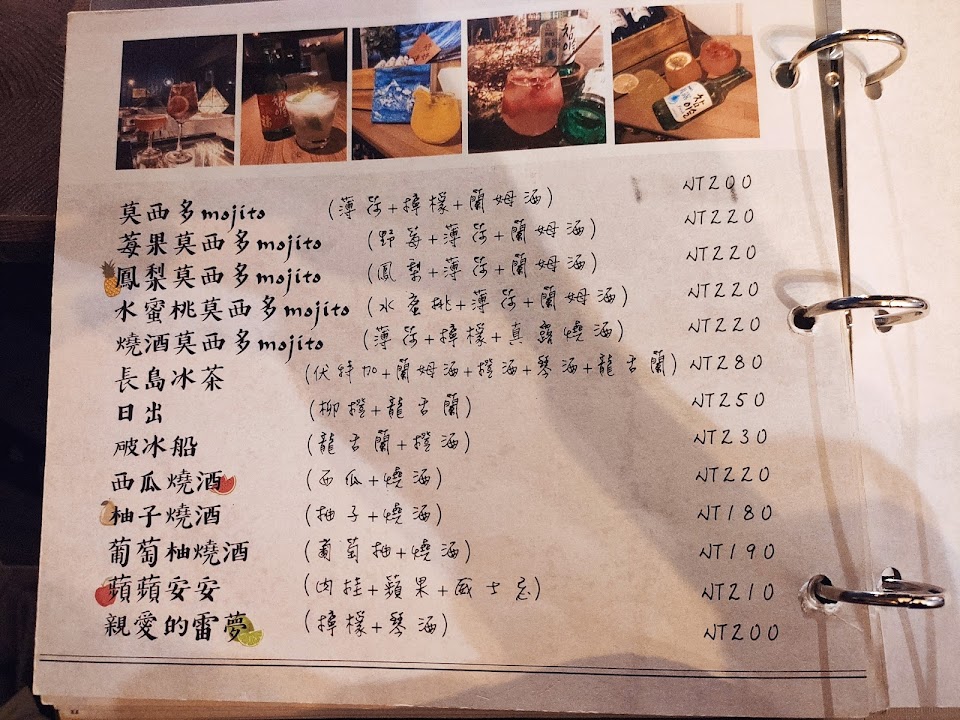 莫西多mojito (薄荷+檸檬+蘭姆酒) NT200
莓果莫西多mojito (野莓+薄荷+蘭姆酒) NT220
鳳梨莫西多mojito (鳳梨+薄荷+蘭姆酒) NT220
水蜜桃莫西多mojito (水蜜桃+薄荷+蘭姆酒) NT220
燒酒莫西多mojito (薄荷+檸檬+真露燒酒) NT220
長島冰茶 (伏特加+蘭姆酒+橙酒+琴酒+龍舌蘭) NT280
日出 (柳橙+龍舌蘭) NT250
破冰船 (龍舌蘭+橙酒) NT230
西瓜燒酒 (西瓜+燒酒) NT220
柚子燒酒 (柚子+燒酒) NT180
葡萄柚燒酒 (葡萄柚+燒酒) NT190
蘋蘋安安 (肉桂+蘋果+威士忌) NT210
親愛的雷夢 (檸檬+琴酒) NT200